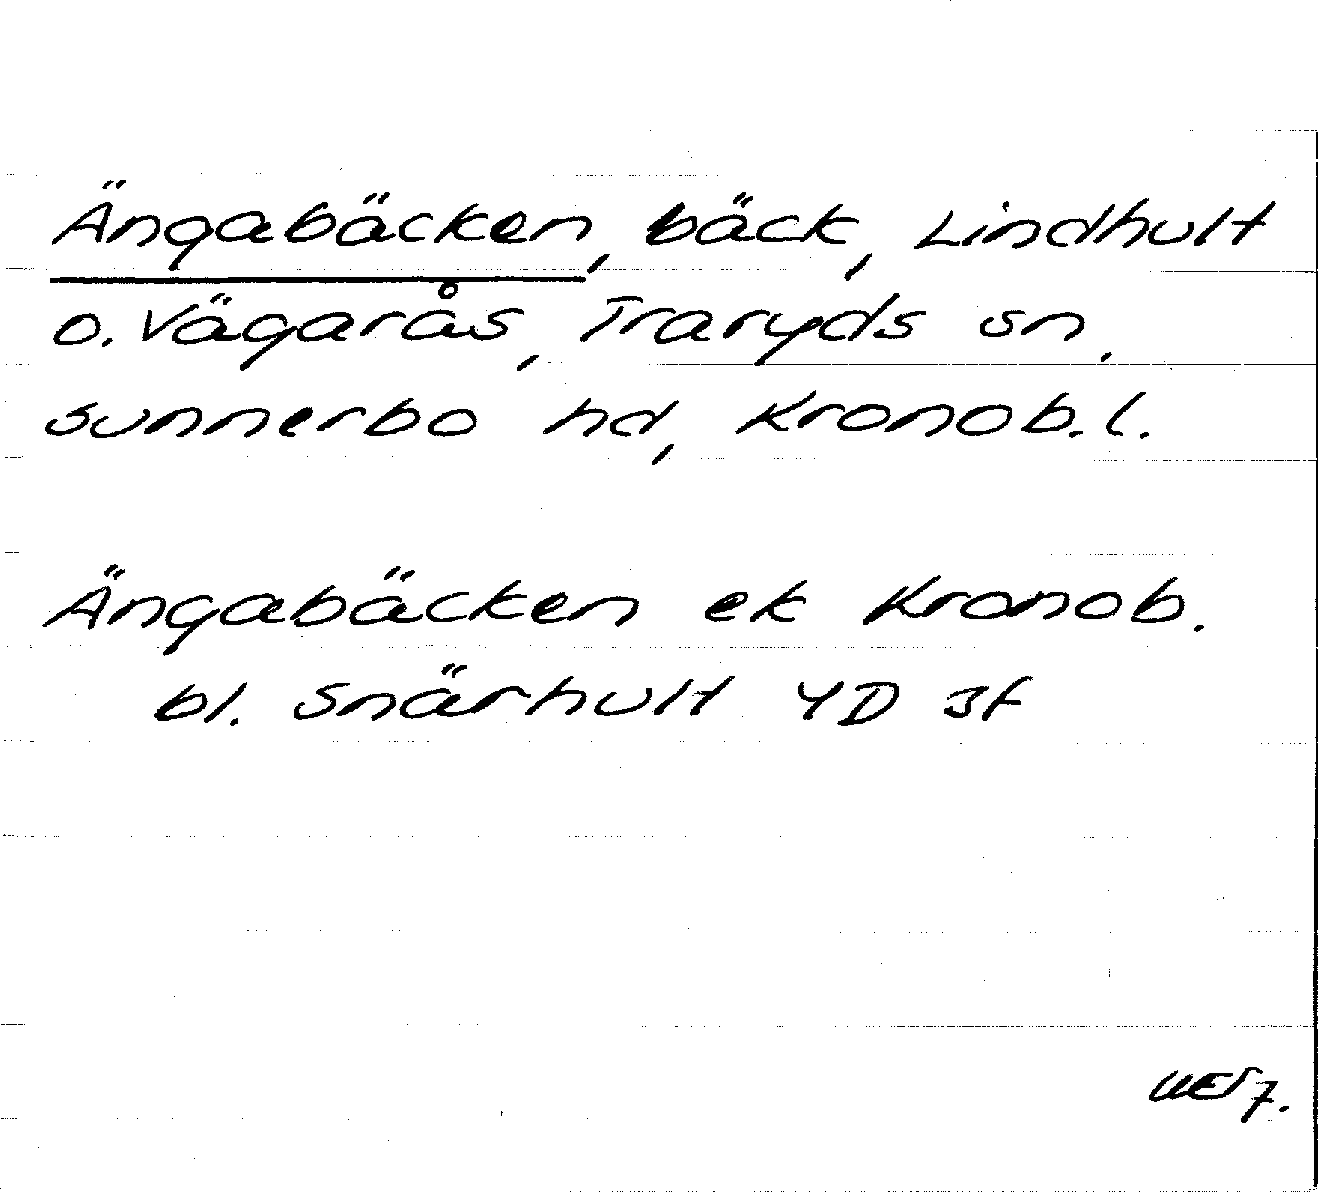 Ängabäcken, bäck, Lindhult
o. Vägarås, Traryds sn,
Sunnerbo hd, Kronob. l.
Ängabäcken ek Kronob.
bl. Snärhult 4D 3f